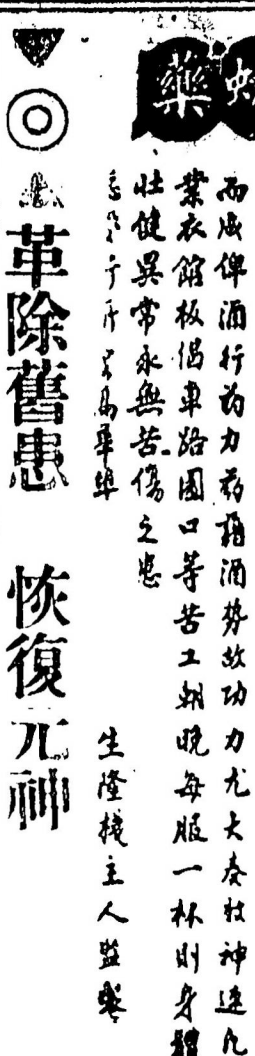 藥
而成俾酒行葯力葯藉酒勢故功力尤大奏效神速凡
業衣館板侶車路園口等苦工朝晚每服一杯則身體
壯健異常永無苦傷之患
生隆棧主人監製
革除舊患 恢復元神